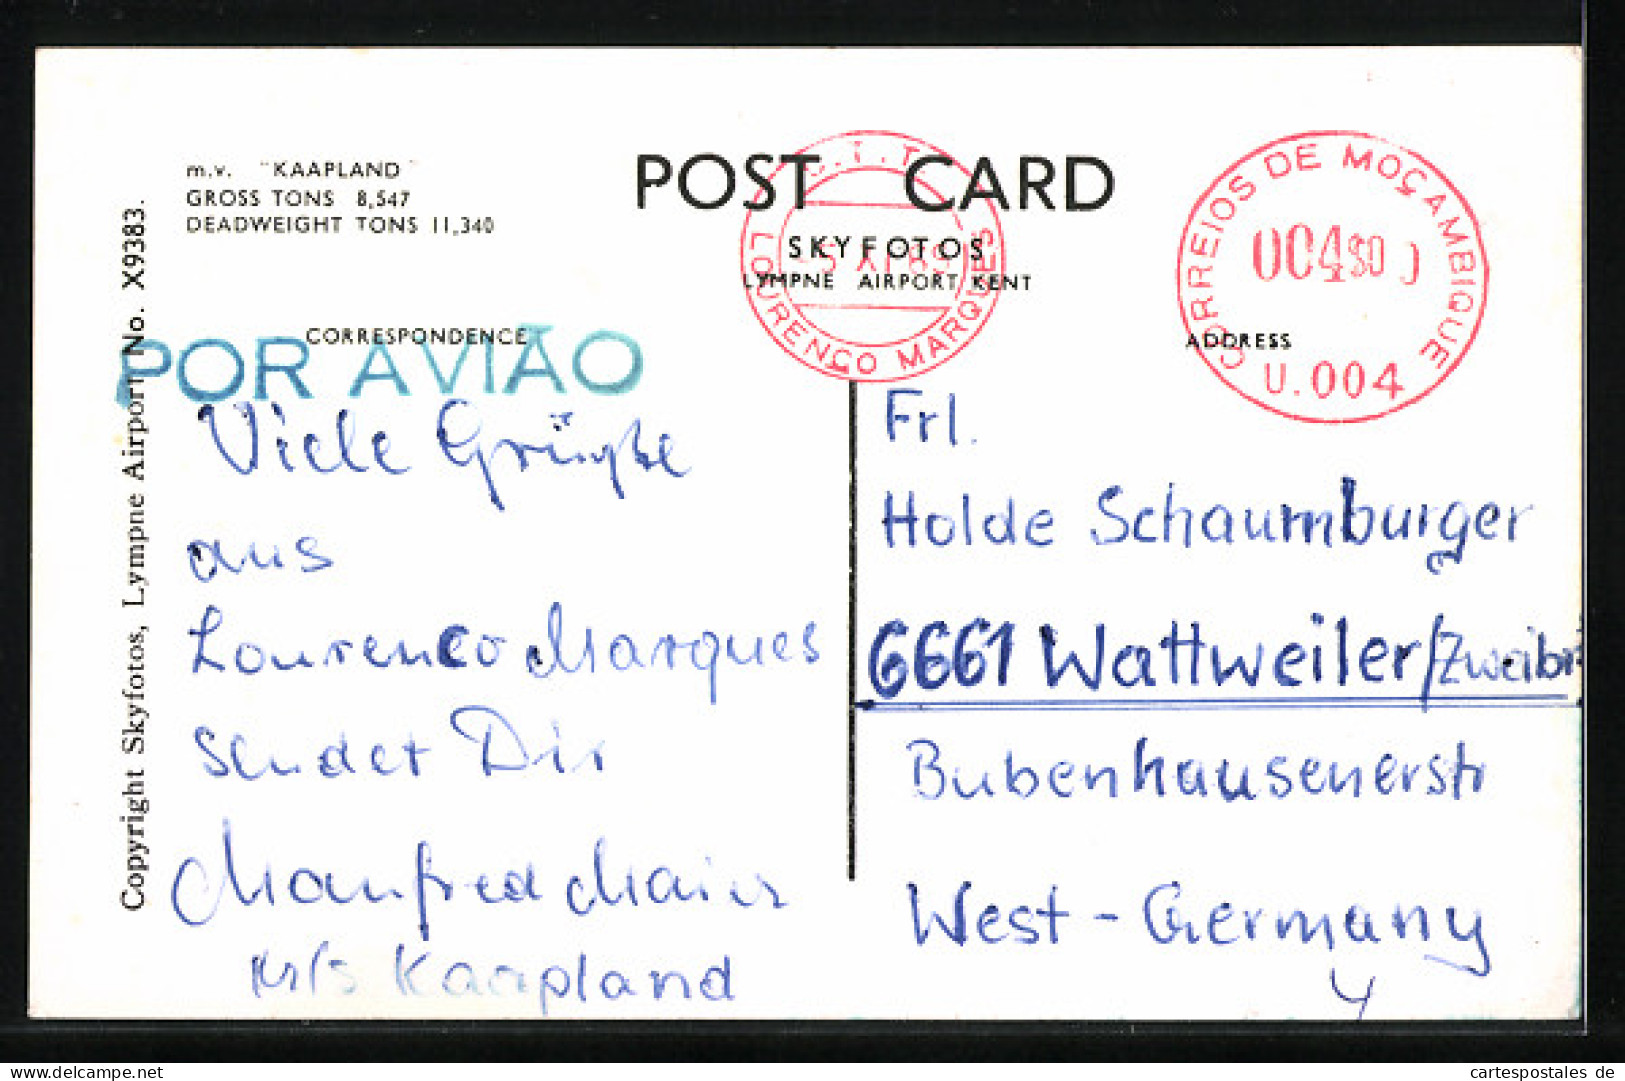 m.v. "KAAPLAND"
GROSS TONS 8,547
DEADWEIGHT TONS 11,340
POST CARD
SKYFOTOS
LYMPNE AIRPORT KENT
C.T.T.
LOURENÇO MARQUES
5 XI 69
CORREIOS DE MOÇAMBIQUE
004$00
U.004
CORRESPONDENCE
ADDRESS
POR AVIÃO
Copyright Skyfotos, Lympne Airport No. X9383.
Viele Grüße
aus
Lourenco Marques
sendet Dir
Manfred Maier
M/S Kaapland
Frl.
Holde Schaumburger
6661 Wattweiler/Zweibr
Bubenhausenerstr
West-Germany
cartespostales de